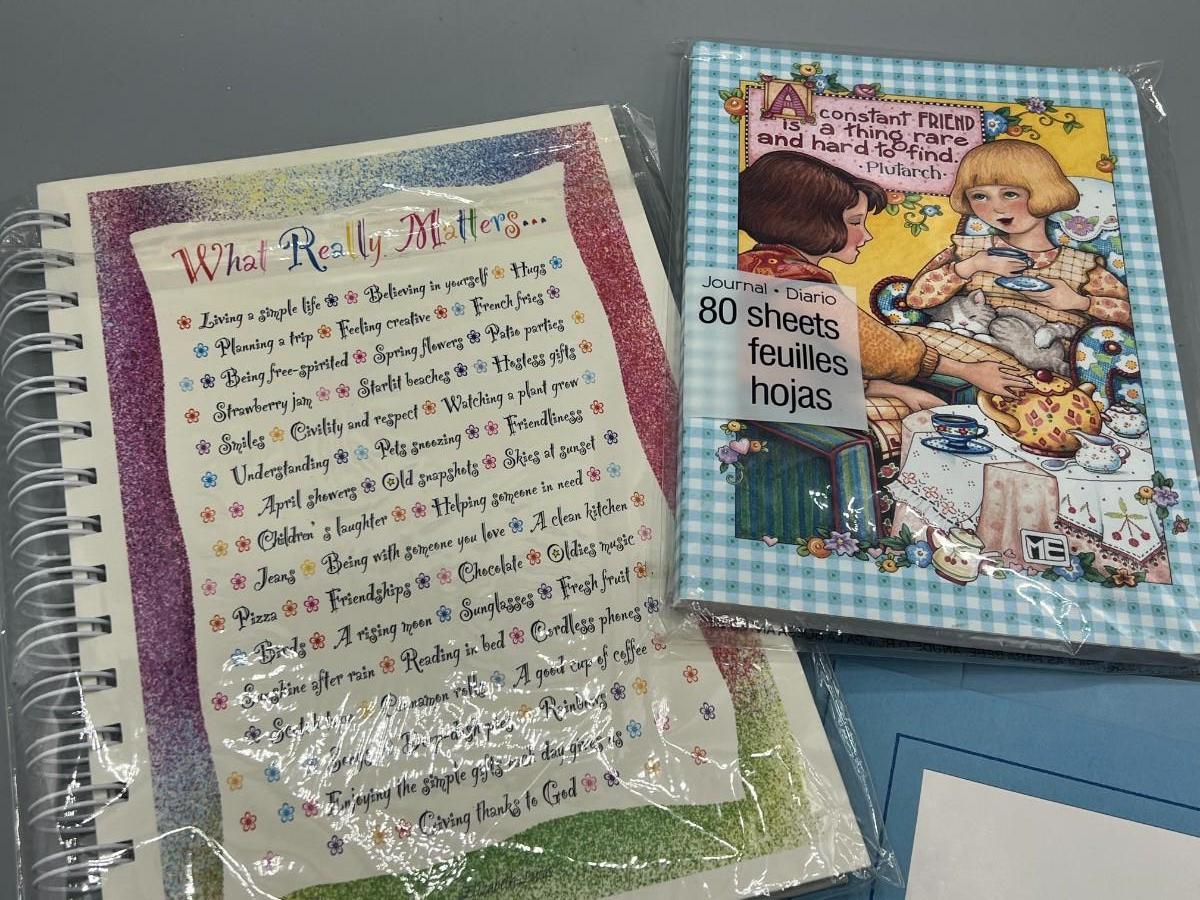 What Really Matters...
Living a simple life Believing in yourself Hugs
Planning a trip Feeling creative French fries
Being free-spirited Spring flowers Patio parties
Strawberry jam Starlit beaches Hostess gifts
Smiles Civility and respect Watching a plant grow
Understanding Pets snoozing Friendliness
April showers Old snapshots Skies at sunset
Children's laughter Helping someone in need
Jeans Being with someone you love A clean kitchen
Pizza Friendships Chocolate Oldies music
Birds A rising moon Sunglasses Fresh fruit
Sunshine after rain Reading in bed Cordless phones
Cinnamon rolls A good cup of coffee
Songs Rainbows
Enjoying the simple gifts each day gives us
Giving thanks to God
A constant FRIEND
is a thing rare
and hard to find.
·Plutarch·
Journal • Diario
80 sheets
feuilles
hojas
ME